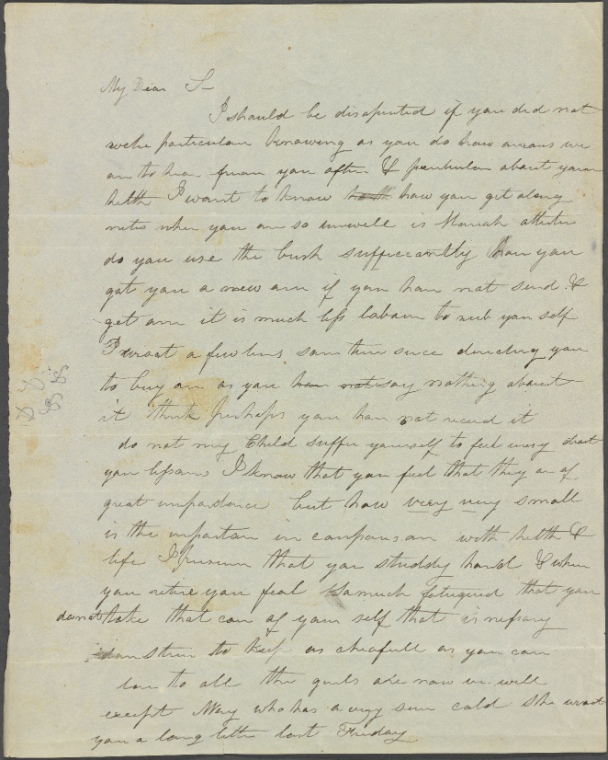 My Dear S—
I should be disapinted if you did not
particular knowing as you do how we
are to hear from you often & about your
helth I want to know how you git along
when you are so unwell is Hannah
do you use the brush sufficcantly have you
got you a new arm if you han not send &
get am it is much less labour to rub your self
I wroat a few lins som time since you
to buy am as you say nothing about
it think perhaps you han not it
do not my Child suffer yourself to feel about
your lessans I know that you feel that they ar of
great impardance but how very very small
is the in camparisan with helth &
life I presum that you studdy hard & when
you retire you feel so much that you
do not take that car of your self that is
to keep as chearfull as you can
lov to all the girls are now well
except Mary who has a very cald she wroat
you a long letter last Friday